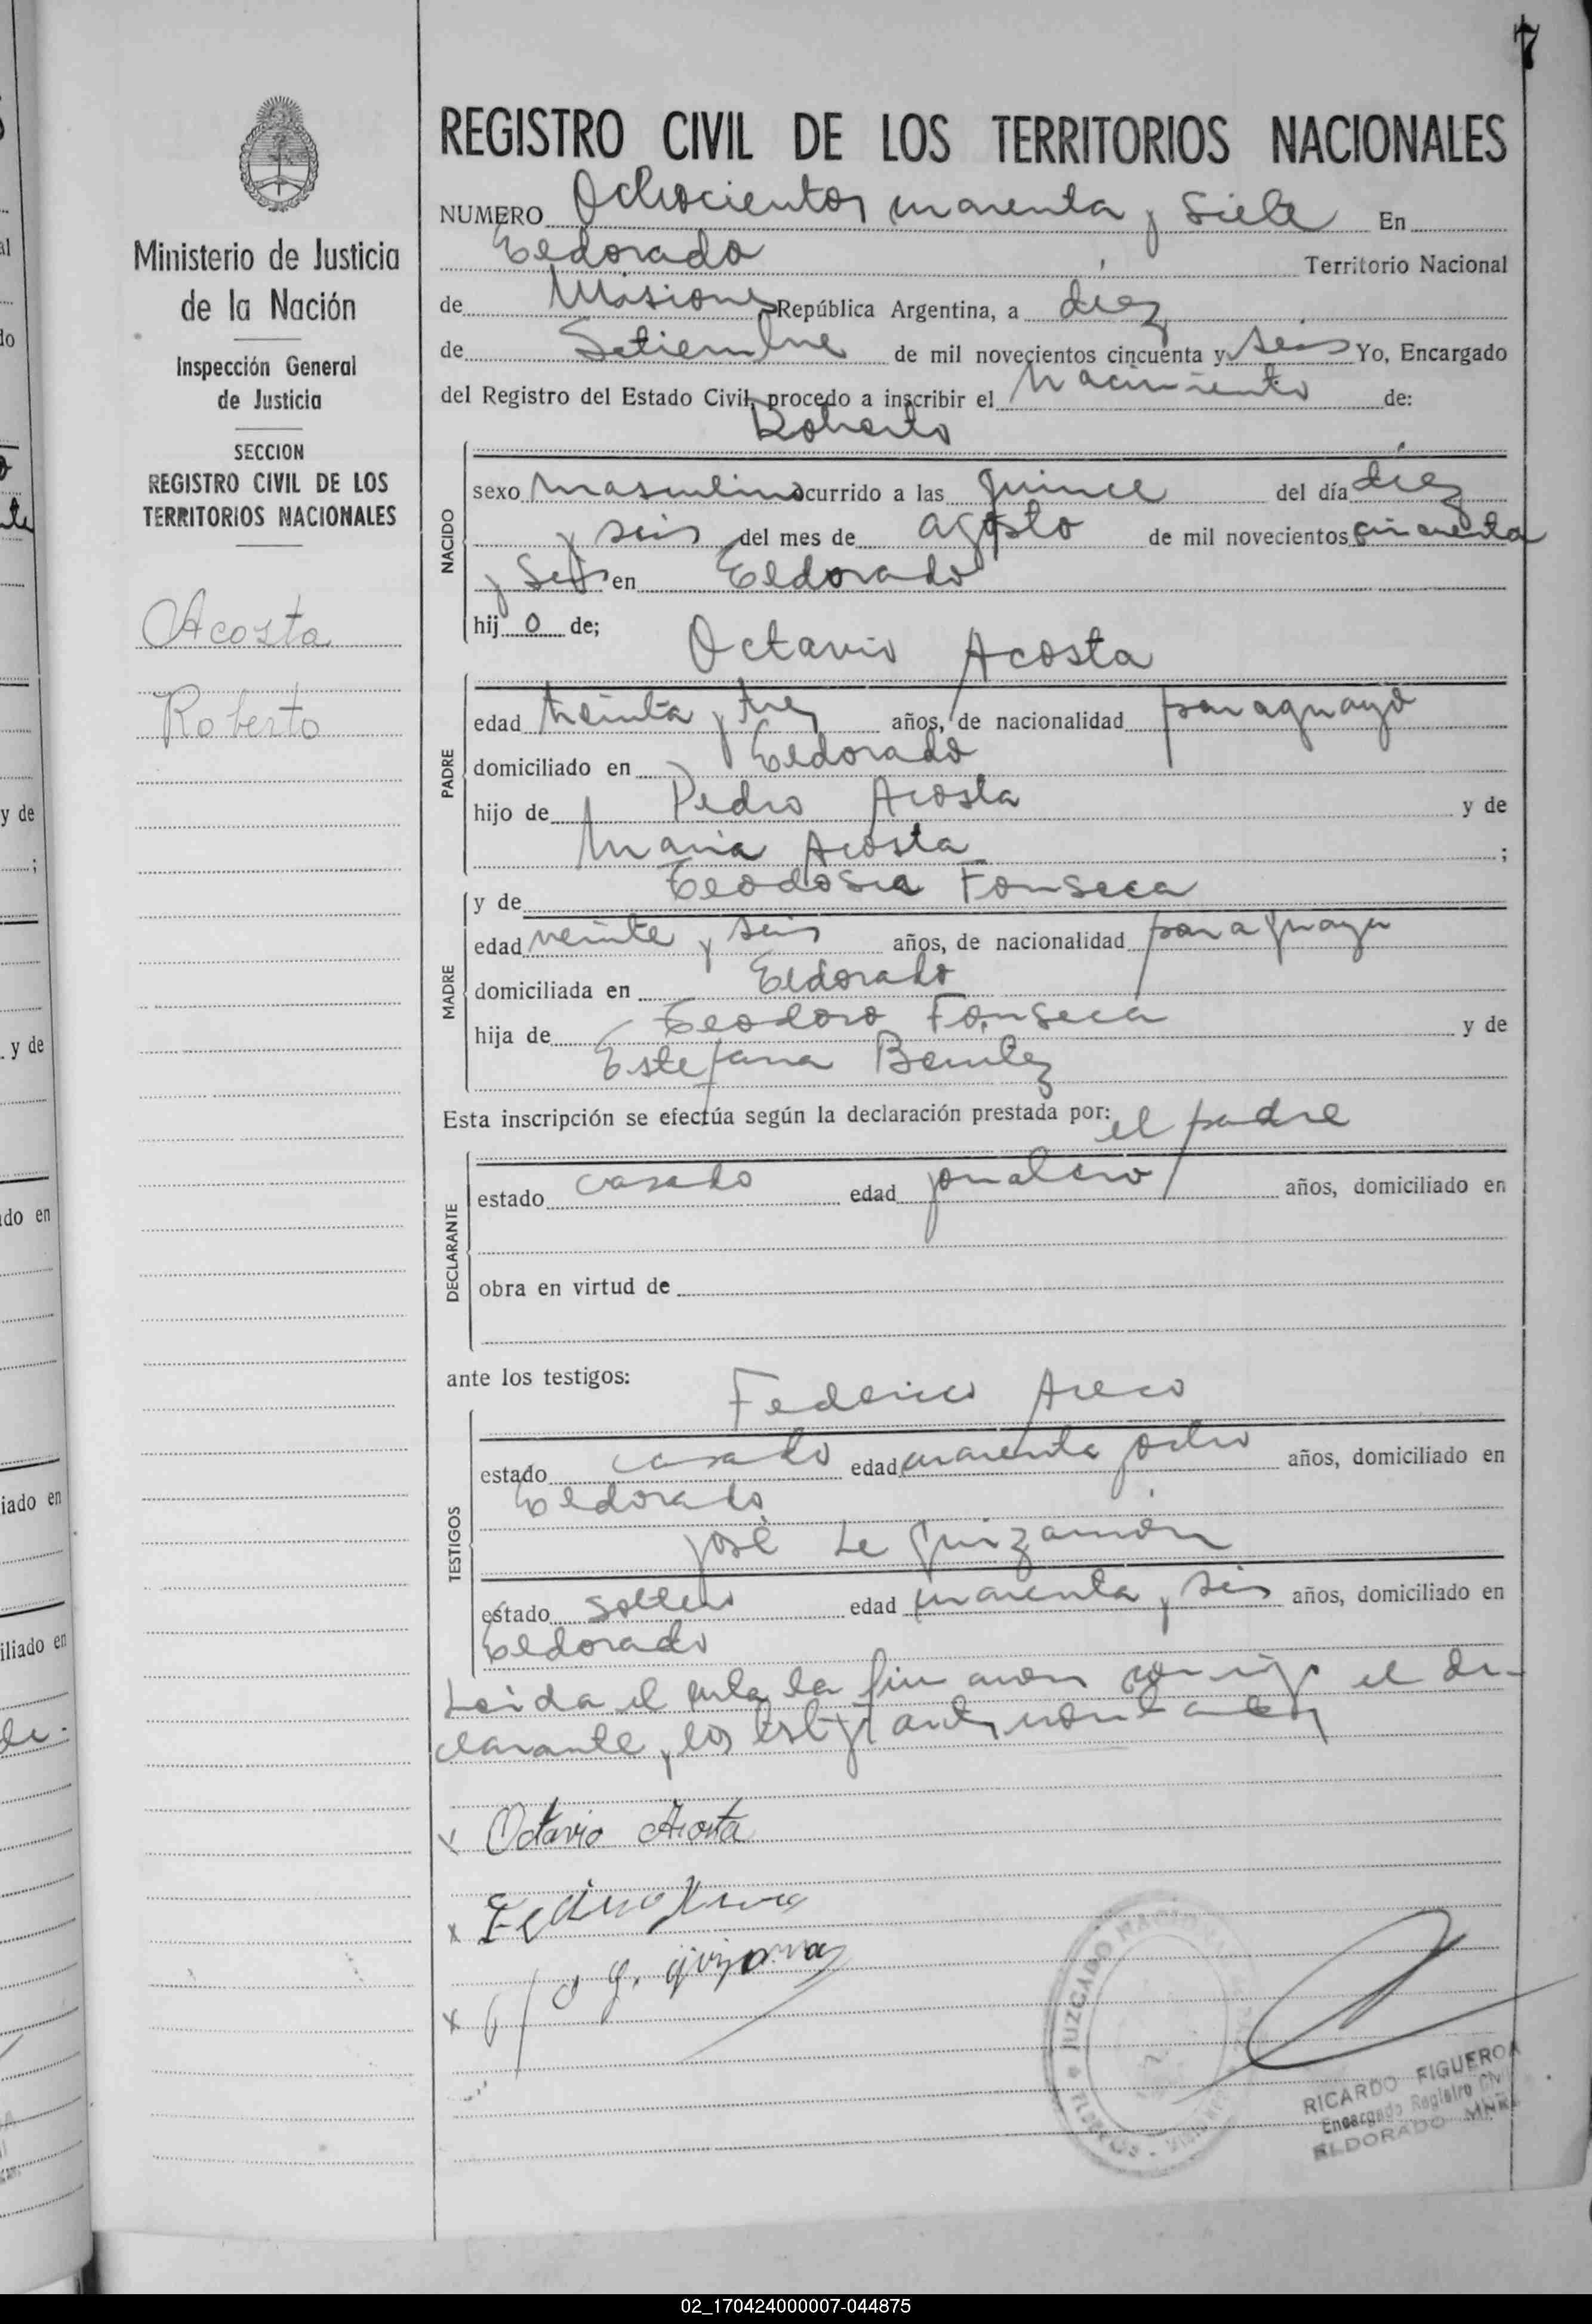 7
REGISTRO CIVIL DE LOS TERRITORIOS NACIONALES
Ministerio de Justicia
de la Nación
Inspección General
de Justicia
SECCION
REGISTRO CIVIL DE LOS
TERRITORIOS NACIONALES
Acosta
Roberto
NUMERO Ochocientos cuarenta y Siete En
Eldorado Territorio Nacional
de Misiones República Argentina, a diez
de Setiembre de mil novecientos cincuenta y seis Yo, Encargado
del Registro del Estado Civil, procedo a inscribir el nacimiento de:
Roberto
NACIDO
sexo masculino ocurrido a las quince del día diez
y seis del mes de agosto de mil novecientos cincuenta
y Seis en Eldorado
hij o de;
Octavio Acosta
PADRE
edad treinta y tres años, de nacionalidad paraguayo
domiciliado en Eldorado
hijo de Pedro Acosta y de
Maria Acosta ;
y de Teodosia Fonseca
MADRE
edad veinte y seis años, de nacionalidad paraguaya
domiciliada en Eldorado
hija de Teodoro Fonseca y de
Estefana Benitez
Esta inscripción se efectúa según la declaración prestada por: el padre
DECLARANTE
estado casado edad jornalero años, domiciliado en
obra en virtud de
ante los testigos:
Federico Areco
TESTIGOS
estado casado edad cuarenta y ocho años, domiciliado en
Eldorado
José Le guizamón
estado soltero edad cuarenta y seis años, domiciliado en
Eldorado
Leida el acta la firmaron conmigo el de-
clarante y los testigos antes nombrados
x Octavio Acosta
x
x
JUZGADO NACIONAL
RICARDO FIGUEROA
Encargado Registro Civil
ELDORADO
y de
;
y de
do en
iado en
iliado en
02_170424000007-044875